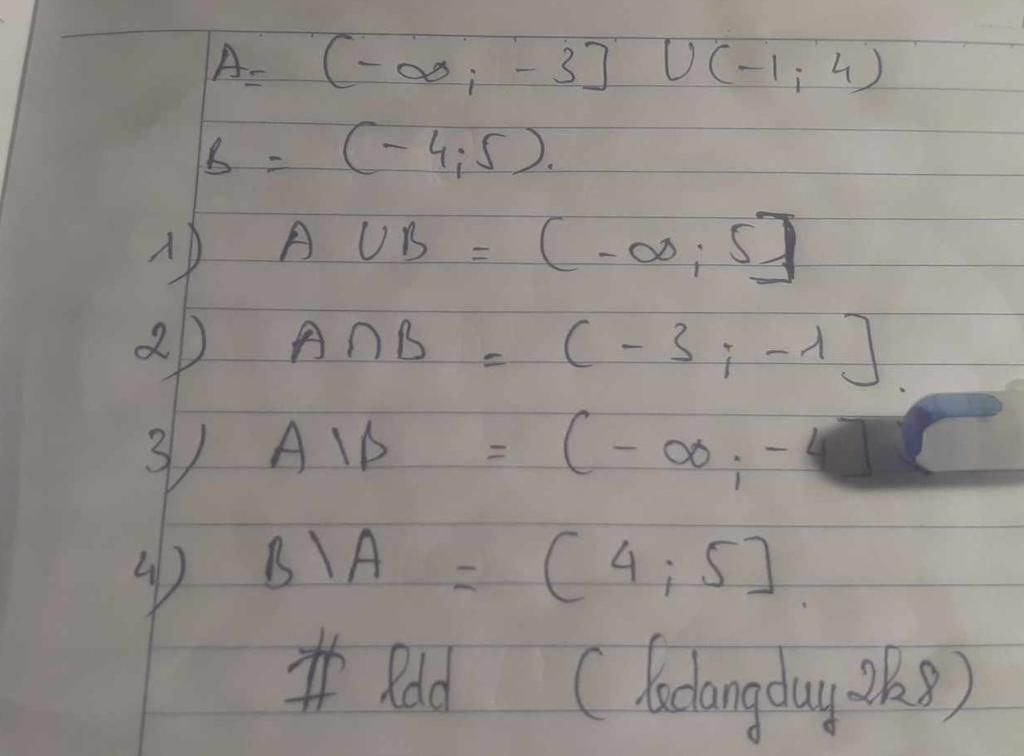 A = (-∞; -3] ∪ (-1; 4)
B = (-4; 5).
1) A ∪ B = (-∞; 5]
2) A ∩ B = (-3; -1].
3) A \ B = (-∞; -4]
4) B \ A = (4; 5].
# ldd (ledangduy2k8)